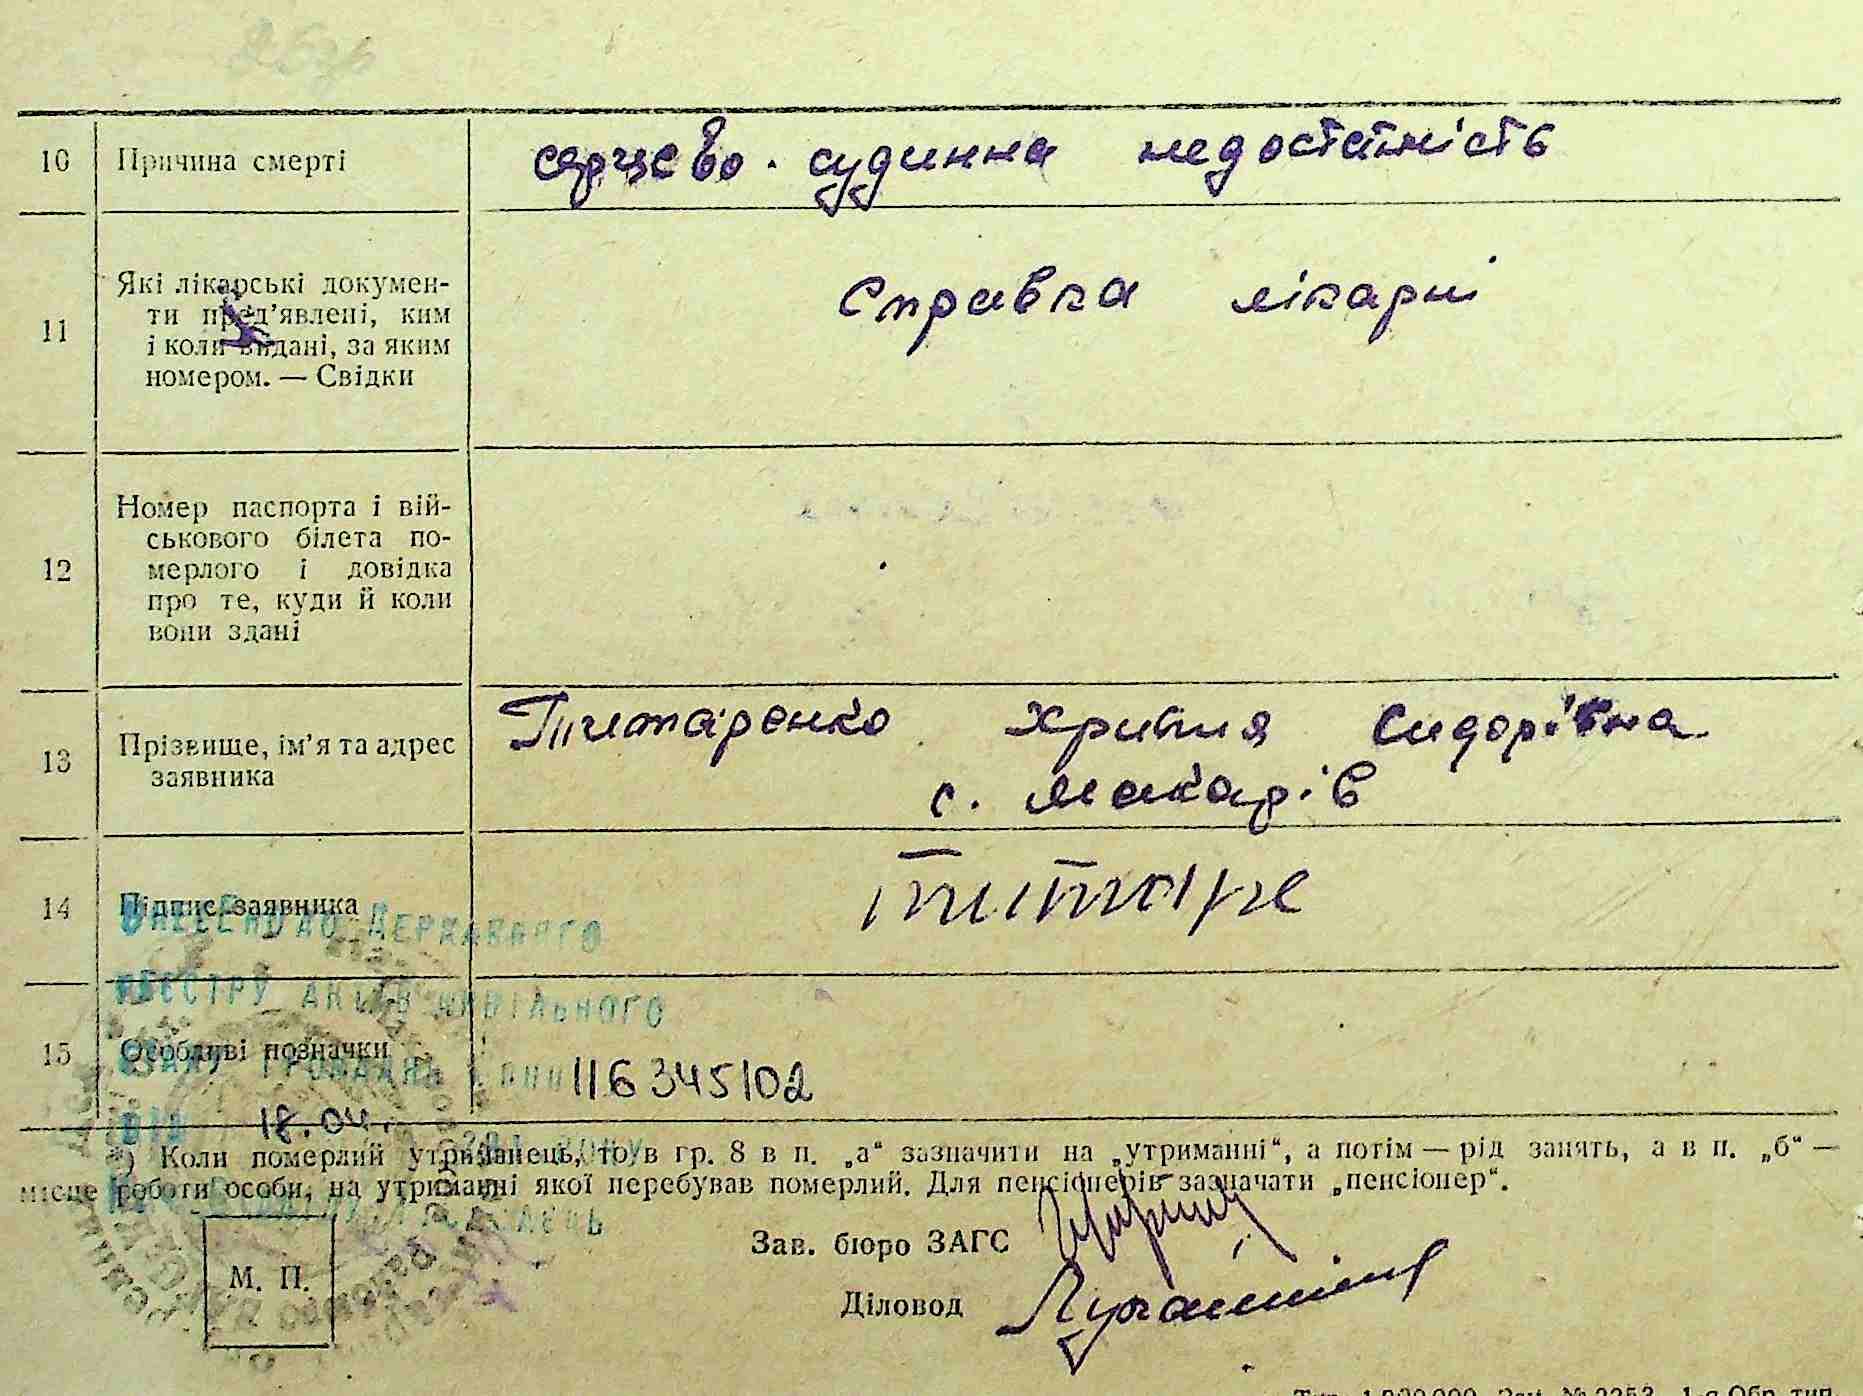 10 Причина смерті серцево-судинна недостатність
11 Які лікарські докумен-
ти пред’явлені, ким
і коли видані, за яким
номером. — Свідки
Справка лікарні
12 Номер паспорта і вій-
ськового білета по-
мерлого і довідка
про те, куди й коли
вони здані
13 Прізвище, ім’я та адрес
заявника
Титаренко Хривия Сидорівна
с. Макарів
14 Підпис заявника
Титаре
ВНЕСЕНО ДО ДЕРЖАВНОГО
РЕЄСТРУ АКТІВ ЦИВІЛЬНОГО
15 Особливі позначки
СТАНУ ГРОМАДЯН 116345102
ВІД 18.04. РОКУ
*) Коли померлий утриманець, то в гр. 8 в п. „а“ зазначити на „утриманні“, а потім — рід занять, а в п. „б“ —
місце роботи особи, на утриманні якої перебував померлий. Для пенсіонерів зазначати „пенсіонер“.
М. П.
Зав. бюро ЗАГС
Діловод